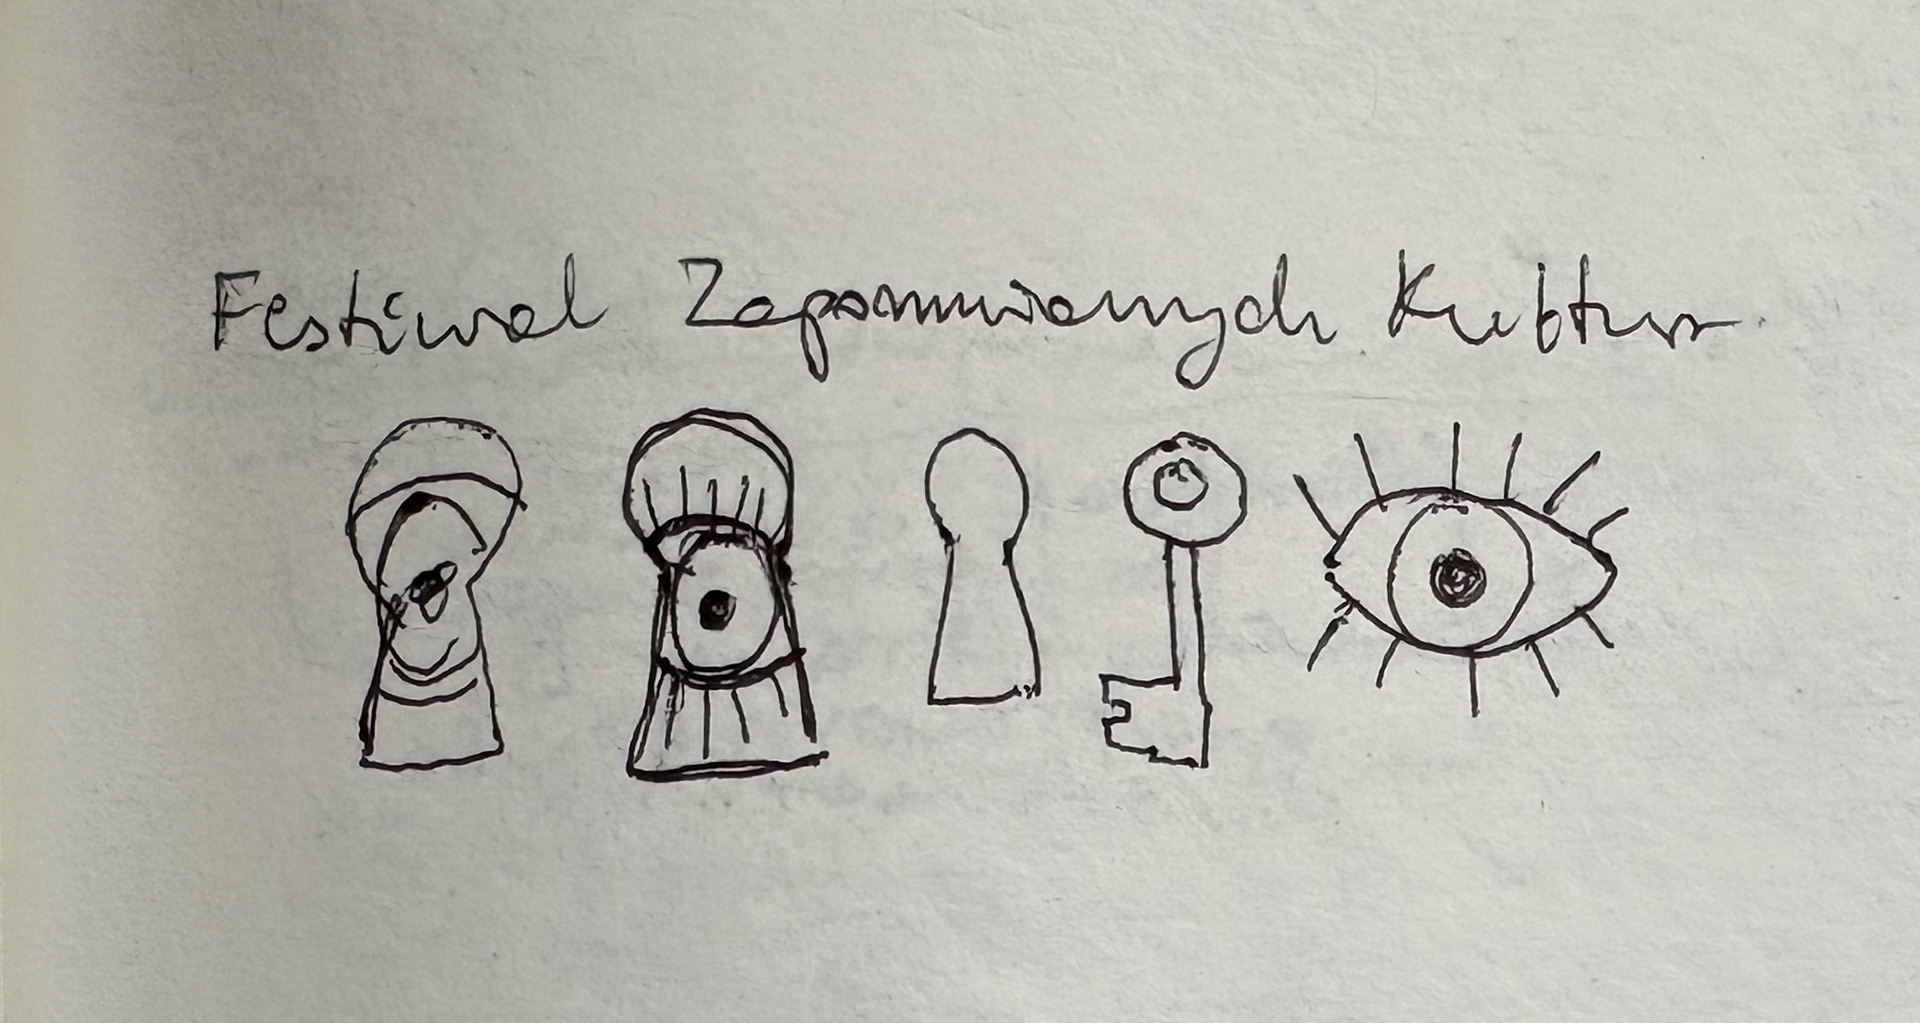 Festiwal Zapomnianych Kultur